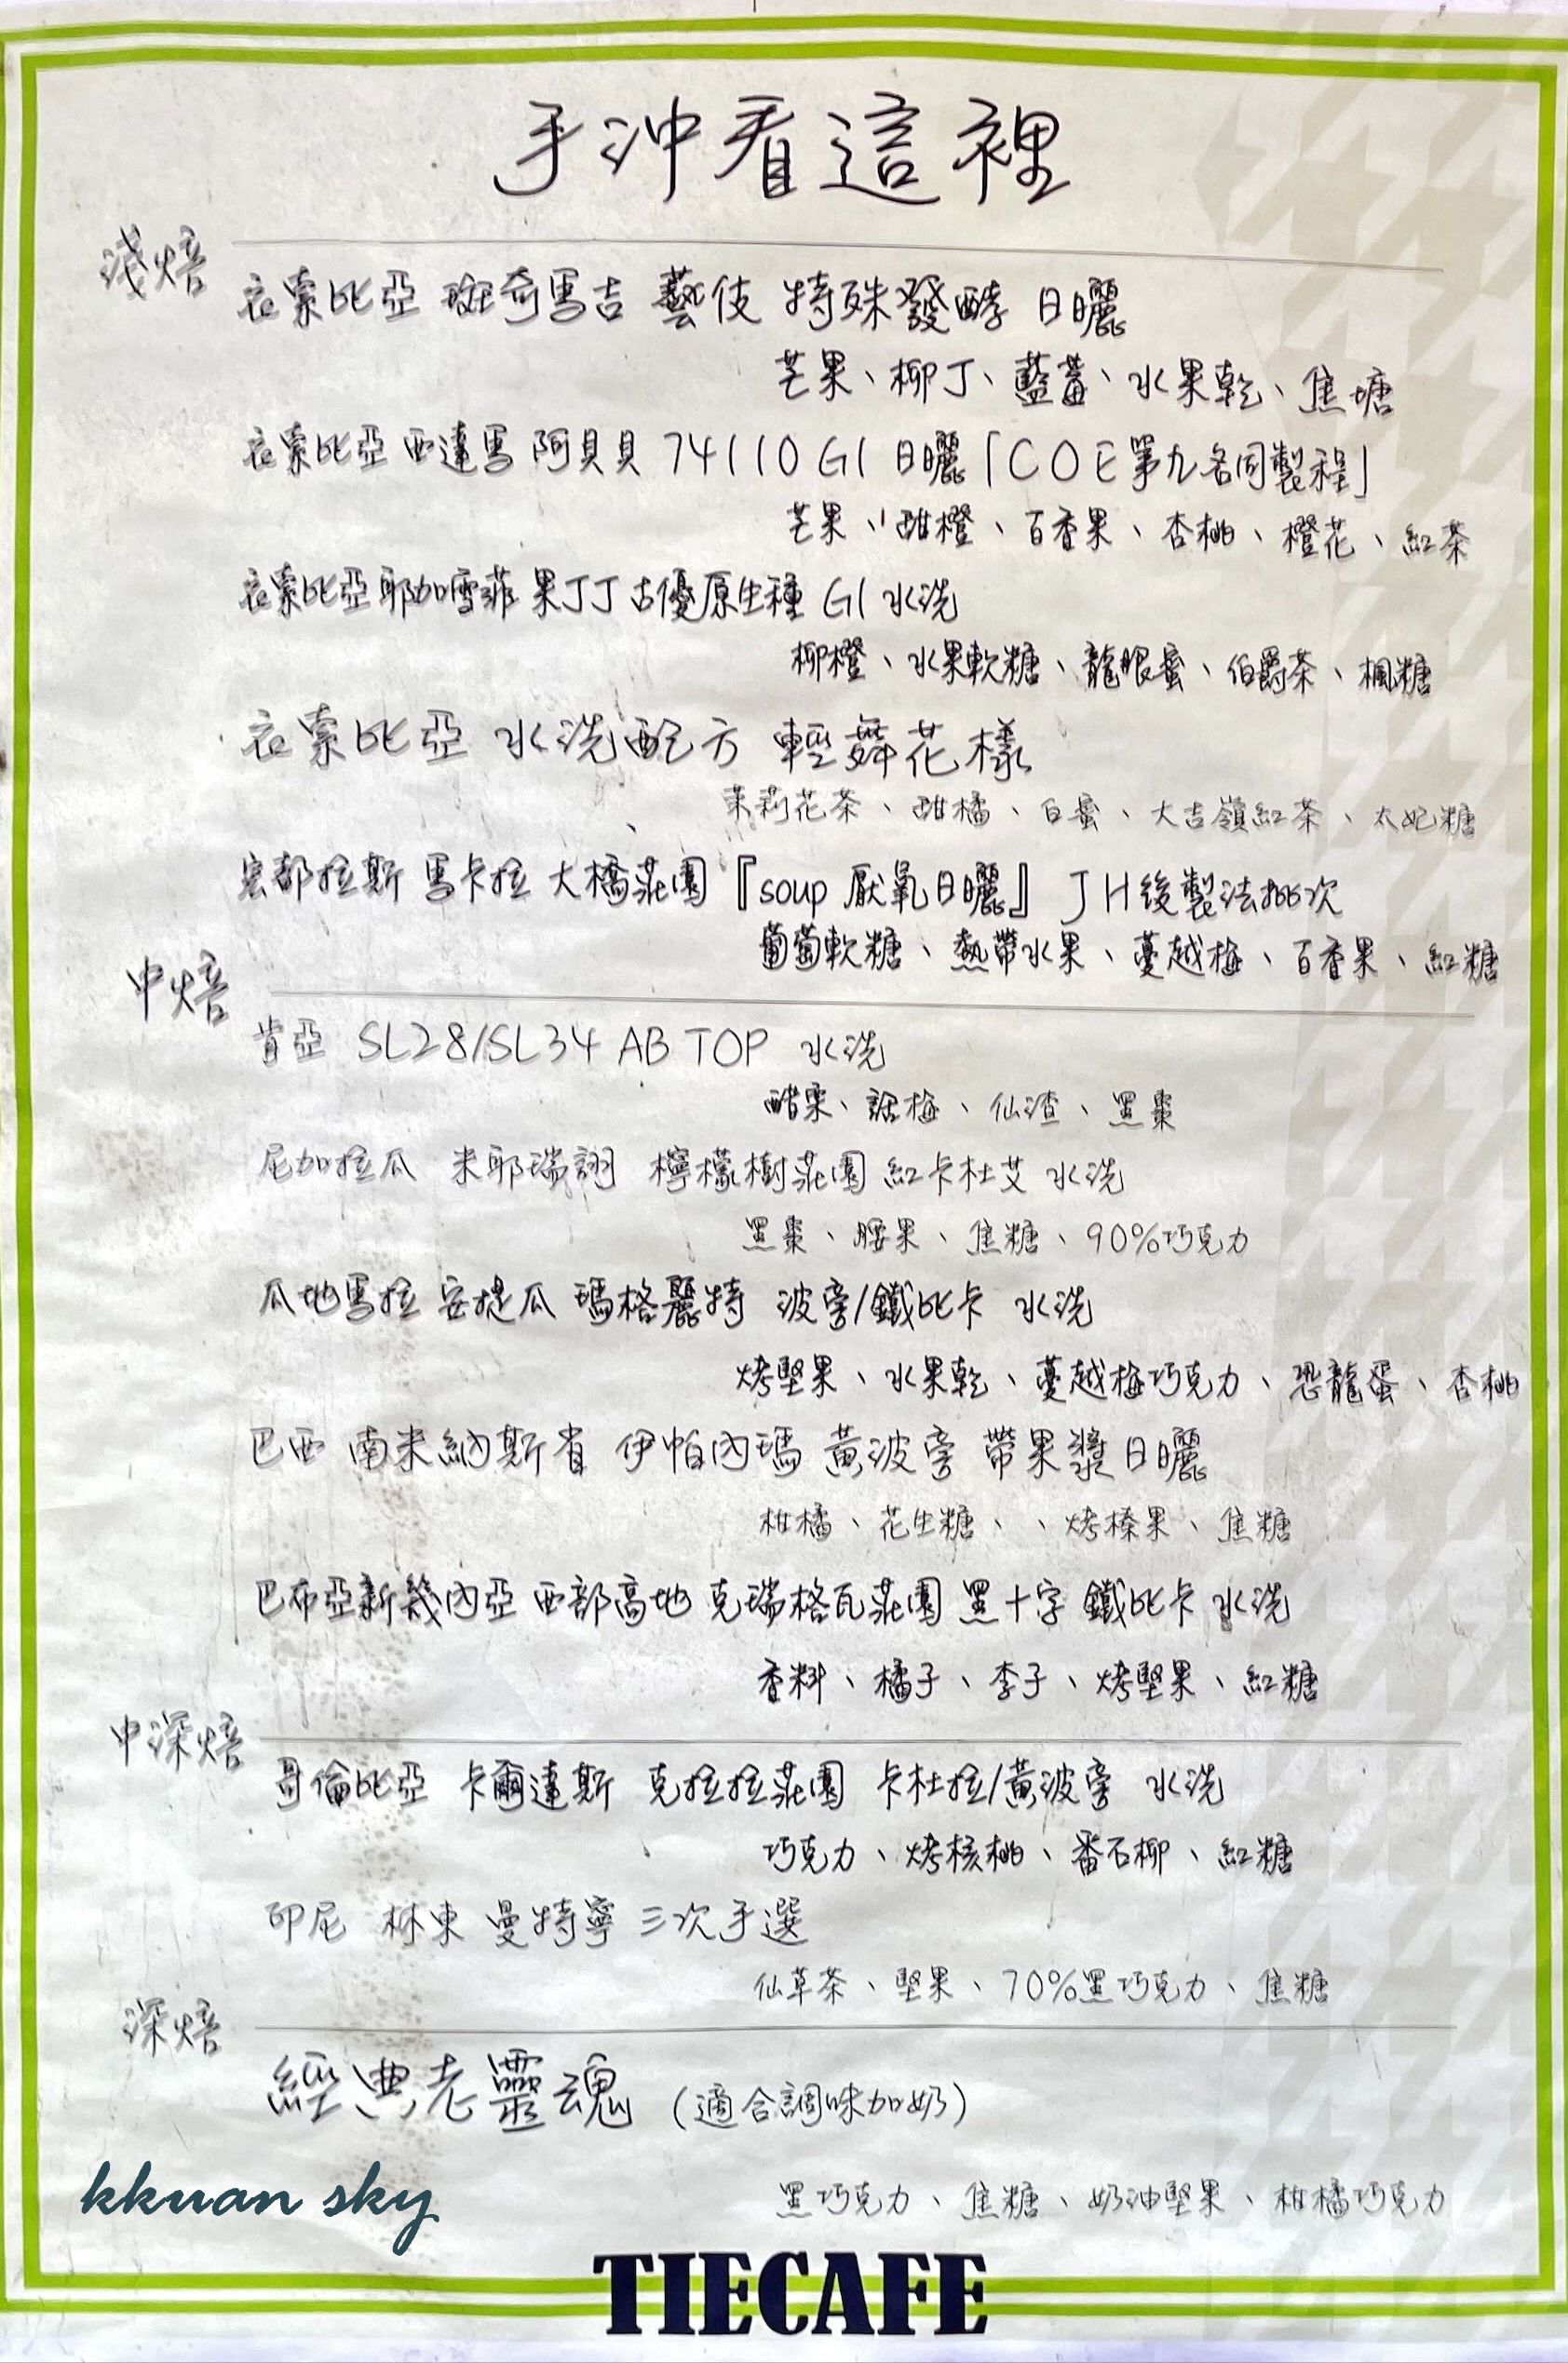 手沖看這裡
淺焙
衣索比亞 斑奇馬吉 藝伎 特殊發酵 日曬
芒果、柳丁、藍莓、水果乾、焦塘
衣索比亞 西達馬 阿貝貝 74110 G1 日曬「COE第九名同製程」
芒果、甜橙、百香果、杏桃、橙花、紅茶
衣索比亞 耶加雪菲 果丁丁 古優原生種 G1 水洗
柳橙、水果軟糖、龍眼蜜、伯爵茶、楓糖
衣索比亞 水洗配方 輕舞花樣
茉莉花茶、甜橘、白蜜、大吉嶺紅茶、太妃糖
宏都拉斯 馬卡拉 大橋莊園『soup 厭氧日曬』 JH後製法批次
葡萄軟糖、熱帶水果、蔓越梅、百香果、紅糖
中焙
肯亞 SL28/SL34 AB TOP 水洗
醋栗、話梅、仙渣、黑棗
尼加拉瓜 米耶瑞詡 檸檬樹莊園 紅卡杜艾 水洗
黑棗、腰果、焦糖、90%巧克力
瓜地馬拉 安提瓜 瑪格麗特 波旁/鐵比卡 水洗
烤堅果、水果乾、蔓越梅巧克力、恐龍蛋、杏桃
巴西 南米納斯省 伊帕內瑪 黃波旁 帶果漿日曬
柑橘、花生糖、、烤榛果、焦糖
巴布亞新幾內亞 西部高地 克瑞格瓦莊園 黑十字 鐵比卡 水洗
香料、橘子、李子、烤堅果、紅糖
中深焙
哥倫比亞 卡爾達斯 克拉拉莊園 卡杜拉/黃波旁 水洗
巧克力、烤核桃、番石榴、紅糖
印尼 林東 曼特寧 三次手選
仙草茶、堅果、70%黑巧克力、焦糖
深焙
經典老靈魂 (適合調味加奶)
黑巧克力、焦糖、奶油堅果、柑橘巧克力
kkuan sky
TIECAFE